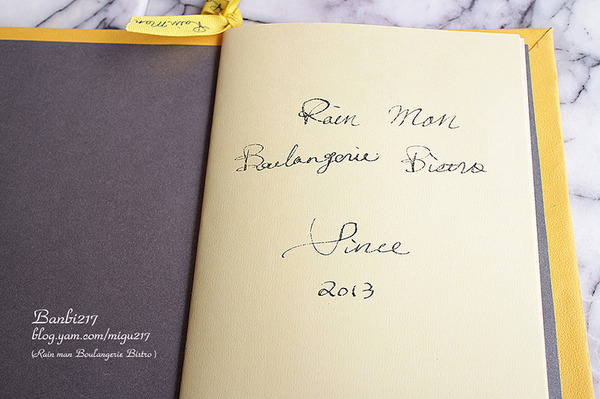 Rain Man
Rain Man
Boulangerie Bistro
Since
2013
Banbi217
blog.yam.com/migu217
(Rain man Boulangerie Bistro )